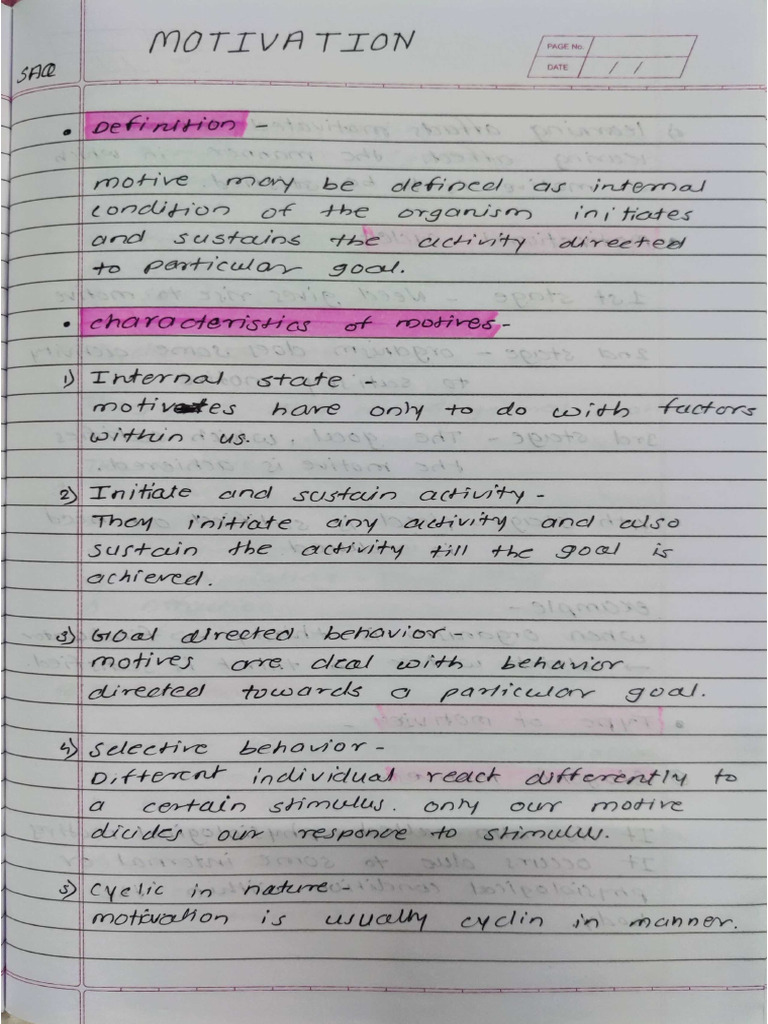 MOTIVATION
PAGE No.
DATE / /
SAQ
• Definition -
motive may be defined as internal
condition of the organism initiates
and sustains the activity directed
to particular goal.
• characteristics of motives -
1) Internal state -
motives have only to do with factors
within us.
2) Initiate and sustain activity -
They initiate any activity and also
sustain the activity till the goal is
achieved.
3) Goal directed behavior -
motives are deal with behavior
directed towards a particular goal.
4) Selective behavior -
Different individual react differently to
a certain stimulus. only our motive
dicides our responce to stimulus.
5) cyclic in nature -
motivation is usually cyclin in manner.